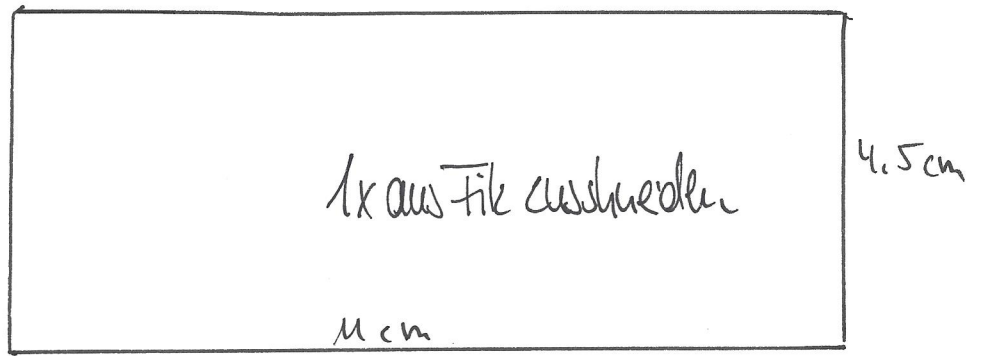 1x aus Filz ausschneiden
4,5cm
11 cm